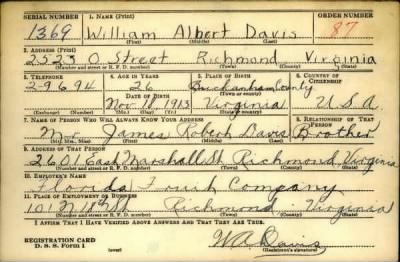 SERIAL NUMBER 1. NAME (Print) ORDER NUMBER
1369 William Albert Davis 87
(First) (Middle) (Last)
2. ADDRESS (Print)
2523 O Street Richmond Virginia
(Number and street or R. F. D. number) (Town) (County) (State)
3. TELEPHONE 4. AGE IN YEARS 5. PLACE OF BIRTH 6. COUNTRY OF CITIZENSHIP
2-9694 26 Buchanhamcounty
DATE OF BIRTH (Town or county)
Nov. 18, 1913 Virginia U.S.A.
(Exchange) (Number) (Mo.) (Day) (Yr.) (State or country)
7. NAME OF PERSON WHO WILL ALWAYS KNOW YOUR ADDRESS 8. RELATIONSHIP OF THAT PERSON
Mr. James Robert Davis Brother
(Mr., Mrs., Miss) (First) (Middle) (Last)
9. ADDRESS OF THAT PERSON
2601 East Marshall St Richmond, Virginia
(Number and street or R. F. D. number) (Town) (County) (State)
10. EMPLOYER'S NAME
Florida Fruit Company
11. PLACE OF EMPLOYMENT OR BUSINESS
101 N 18th St Richmond Virginia
(Number and street or R. F. D. number) (Town) (County) (State)
I AFFIRM THAT I HAVE VERIFIED ABOVE ANSWERS AND THAT THEY ARE TRUE.
REGISTRATION CARD
D. S. S. Form 1
W A Davis
(Registrant's signature)